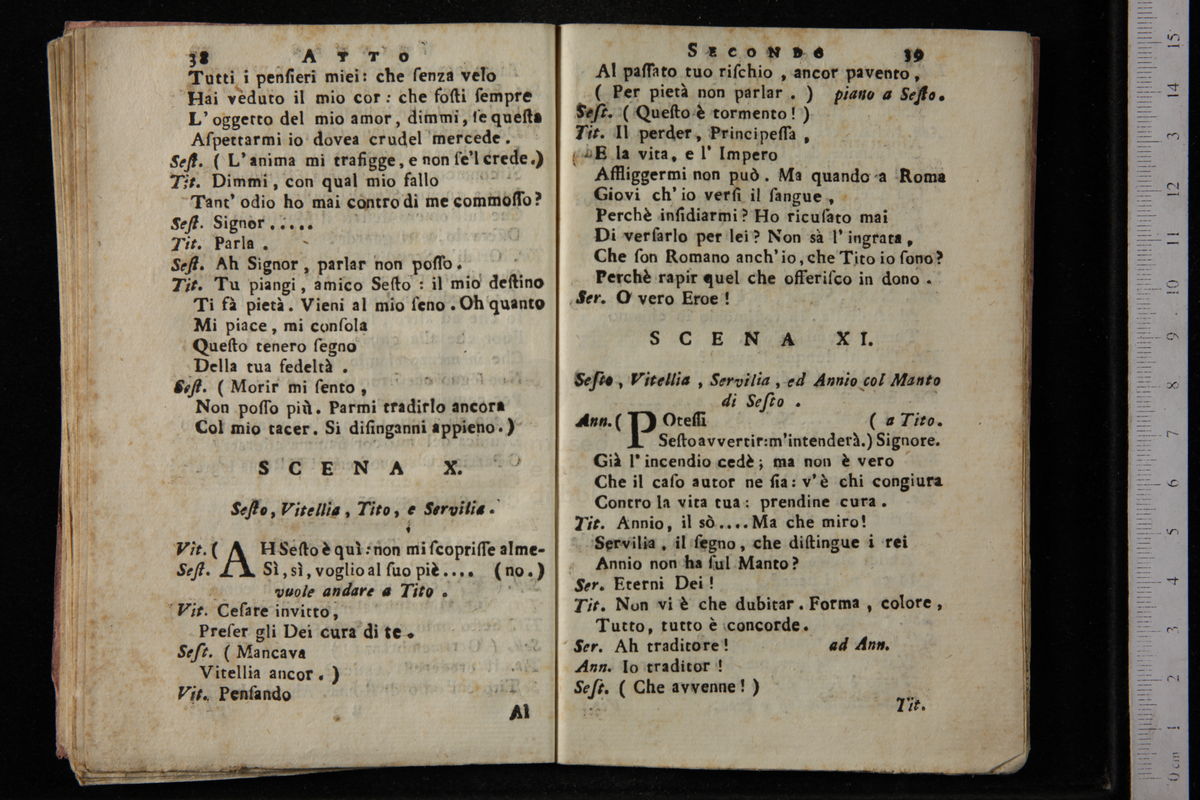 38 ATTO
Tutti i penſieri miei: che ſenza velo
Hai veduto il mio cor: che foſti ſempre
L' oggetto del mio amor, dimmi, ſe queſta
Aſpettarmi io dovea crudel mercede.
Seſt. ( L'anima mi trafigge, e non ſe'l crede.)
Tit. Dimmi, con qual mio fallo
Tant' odio ho mai contro di me commoſſo?
Seſt. Signor.....
Tit. Parla.
Seſt. Ah Signor, parlar non poſſo.
Tit. Tu piangi, amico Seſto: il mio deſtino
Ti fà pietà. Vieni al mio ſeno. Oh quanto
Mi piace, mi conſola
Queſto tenero ſegno
Della tua fedeltà.
Seſt. ( Morir mi ſento,
Non poſſo più. Parmi tradirlo ancora
Col mio tacer. Si diſinganni appieno.)
SCENA X.
Seſto, Vitellia, Tito, e Servilia.
Vit. ( AH Seſto è quì: non mi ſcopriſſe alme-
Seſt. Sì, sì, voglio al ſuo piè.... (no.)
vuole andare a Tito.
Vit. Ceſare invitto,
Preſer gli Dei cura di te.
Seſt. ( Mancava
Vitellia ancor. )
Vit. Penſando
Al
SECONDO 39
Al paſſato tuo riſchio, ancor pavento,
( Per pietà non parlar. ) piano a Seſto.
Seſt. ( Queſto è tormento! )
Tit. Il perder, Principeſſa,
E la vita, e l' Impero
Affliggermi non può. Ma quando a Roma
Giovi ch' io verſi il ſangue,
Perchè inſidiarmi? Ho ricuſato mai
Di verſarlo per lei? Non sà l' ingrata,
Che ſon Romano anch'io, che Tito io ſono?
Perchè rapir quel che offeriſco in dono.
Ser. O vero Eroe!
SCENA XI.
Seſto, Vitellia, Servilia, ed Annio col Manto
di Seſto.
Ann. ( POteſſi ( a Tito.
Seſto avvertir: m'intenderà.) Signore.
Già l' incendio cedè; ma non è vero
Che il caſo autor ne ſia: v'è chi congiura
Contro la vita tua: prendine cura.
Tit. Annio, il sò.... Ma che miro!
Servilia, il ſegno, che diſtingue i rei
Annio non ha ſul Manto?
Ser. Eterni Dei!
Tit. Non vi è che dubitar. Forma, colore,
Tutto, tutto è concorde.
Ser. Ah traditore! ad Ann.
Ann. Io traditor!
Seſt. ( Che avvenne! )
Tit.
0 cm 1 2 3 4 5 6 7 8 9 10 11 12 13 14 15